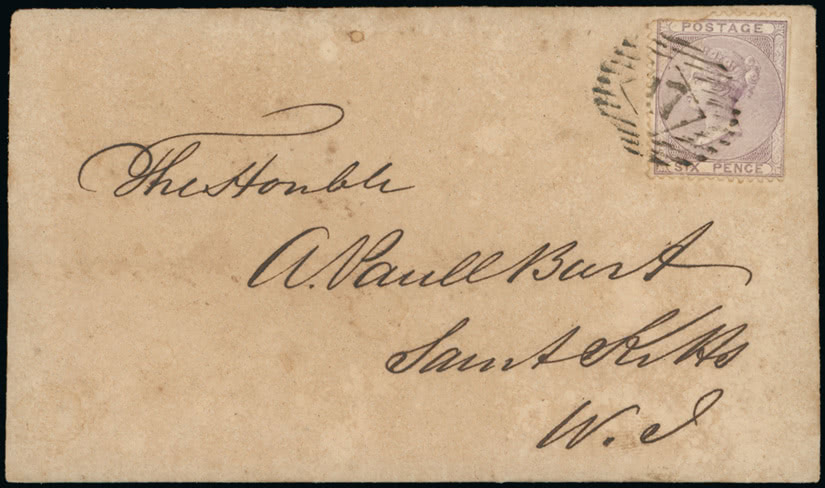 POSTAGE
SIX PENCE
The Honble
A. Paull Burt
Saint Kitts
W. I